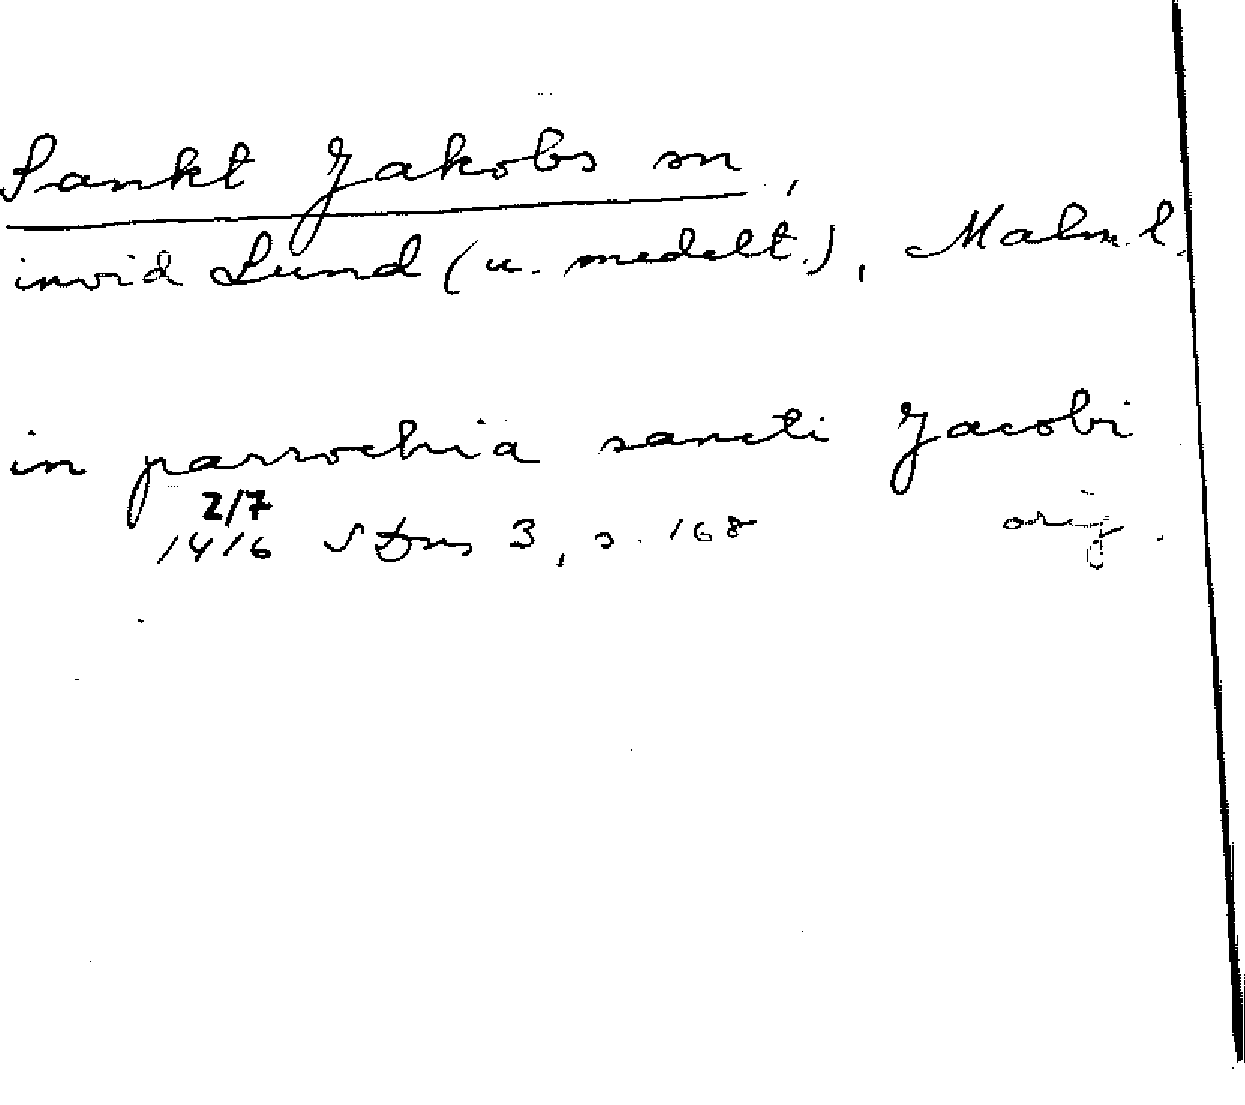 Sankt Jakobs sn,
invid Lund (u. medelt.), Malm. l.
in parrochia sancti Jacobi
2/7
1416 SDns 3, s. 168 orig.